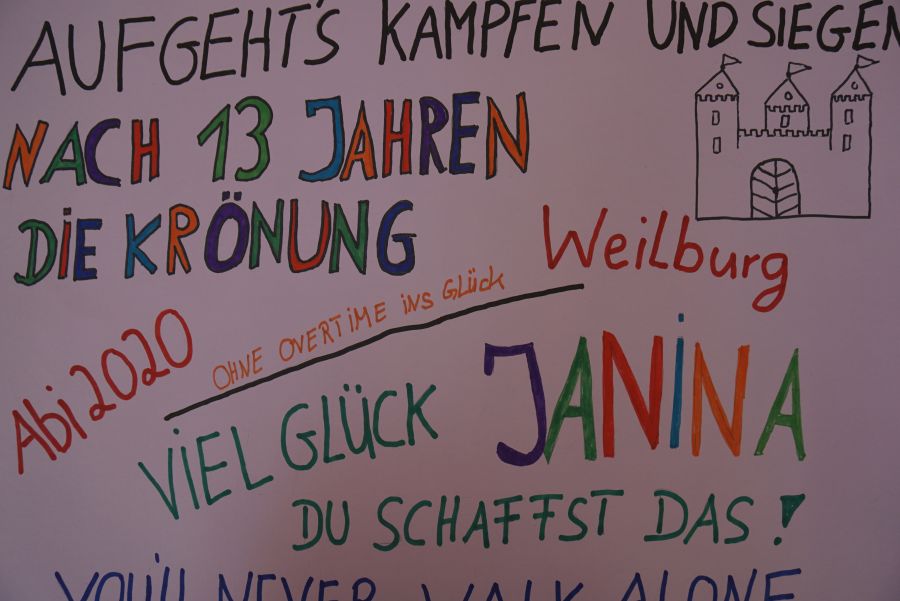 AUFGEHT'S KÄMPFEN UND SIEGEN
NACH 13 JAHREN
DIE KRÖNUNG
Weilburg
OHNE OVERTIME INS GLÜCK
Abi 2020
VIEL GLÜCK JANINA
DU SCHAFFST DAS!
YOU'LL NEVER WALK ALONE